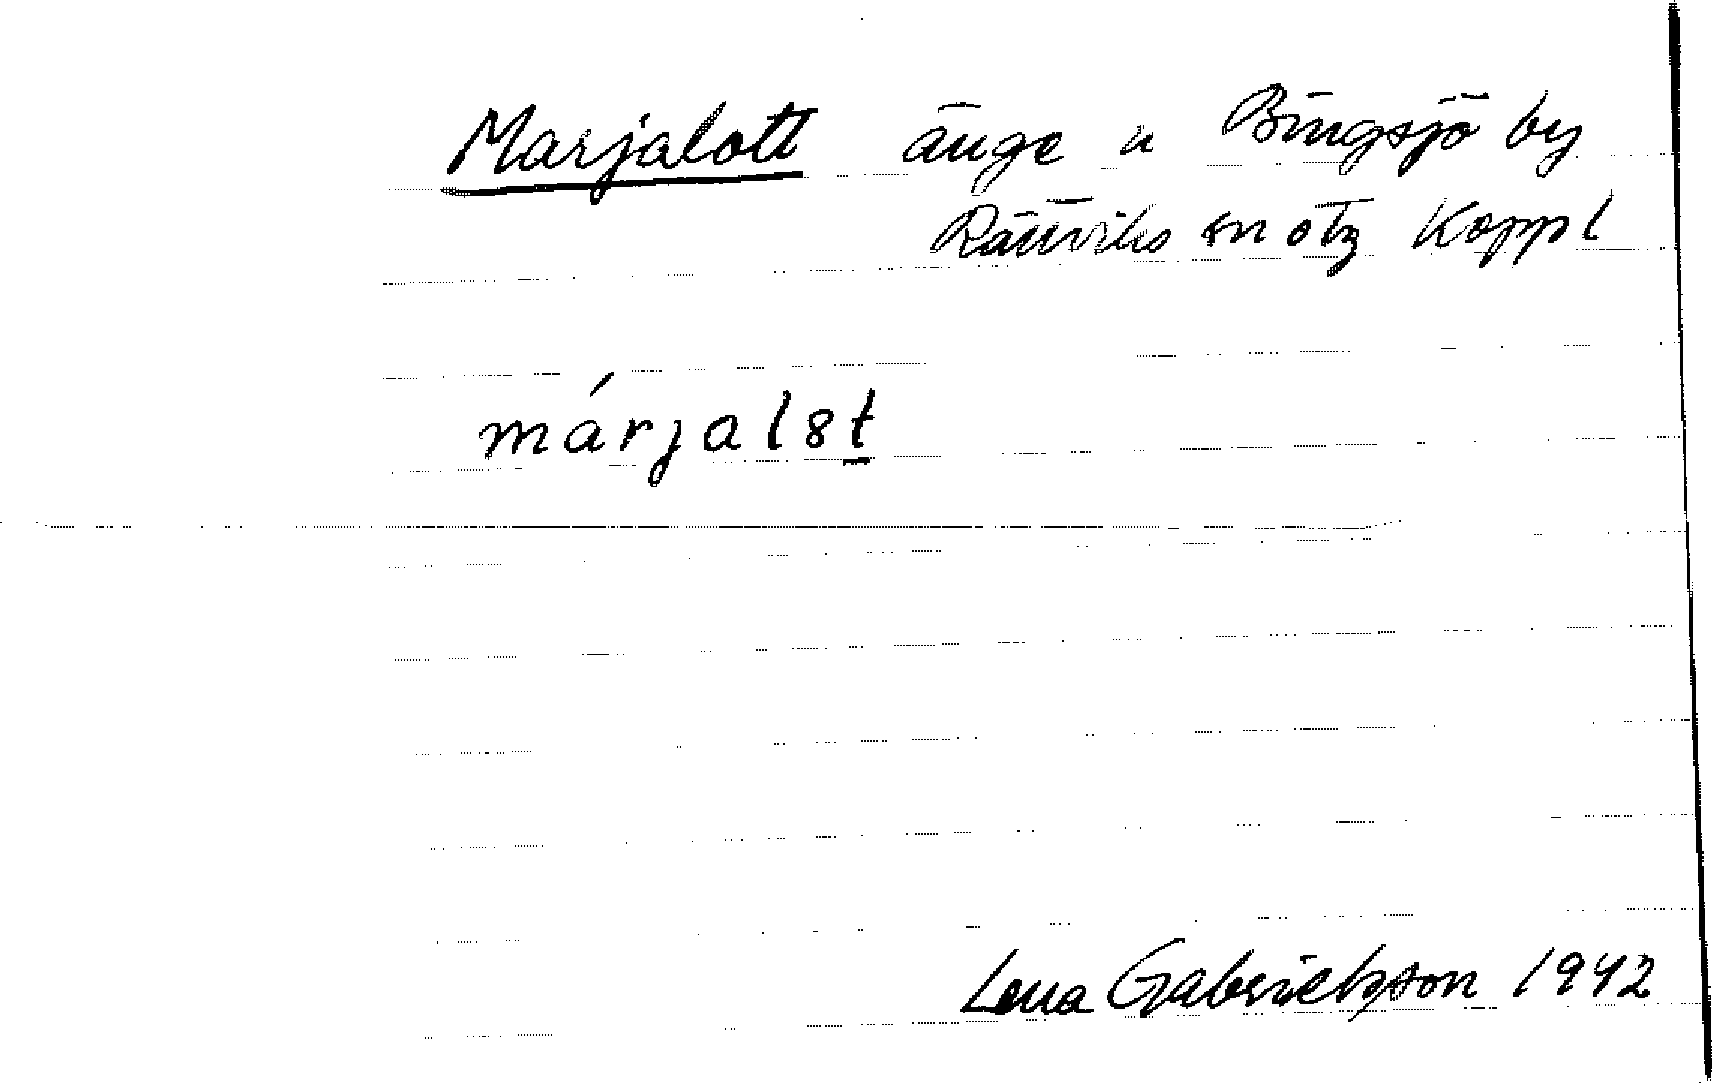 Marjalott änge u Bingsjö by
Rättviks sn otg Koppl
márjal8t
Lena Gabrielsson 1942